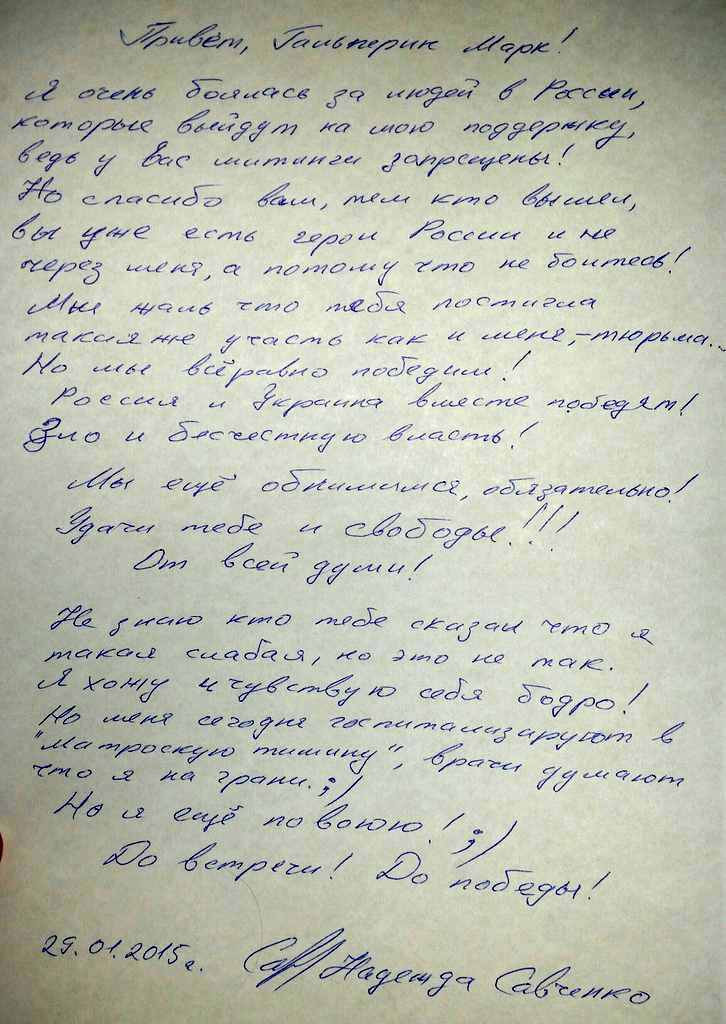 Привет, Гальперин Марк!
Я очень боялась за людей в России,
которые выйдут на мою поддержку,
ведь у Вас митинги запрещены!
Но спасибо вам, тем кто вышел,
вы уже есть герои России и не
через меня, а потому что не боитесь!
Мне жаль что тебя постигла
такая же участь как и меня,-тюрьма...
Но мы всёравно победим!
Россия и Украина вместе победят!
Зло и бесчестную власть!
Мы ещё обнимимся, обязательно!
Удачи тебе и свободы!!!
От всей души!
Не знаю кто тебе сказал что я
такая слабая, но это не так.
Я хожу и чувствую себя бодро!
Но меня сегодня госпитализируют в
"матроскую тишину", врачи думают
что я на грани. ;)
Но я ещё повоюю! ;)
До встречи! До победы!
29.01.2015г. Сав Надежда Савченко